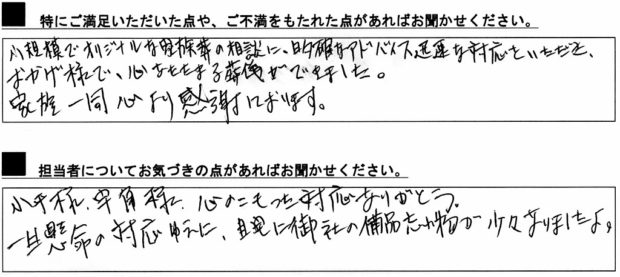 特にご満足いただいた点や、ご不満をもたれた点があればお聞かせください。
小規模でオリジナルな家族葬の相談に、的確なアドバイス迅速な対応をいただき、
おかげ様で、心あたたまる葬儀ができました。
家族一同心より感謝しております。
担当者についてお気づきの点があればお聞かせください。
様、様、心のこもった対応ありがとう。
一生懸命の対応ゆえに、自宅に御社の備品忘れ物が少々ありましたよ。